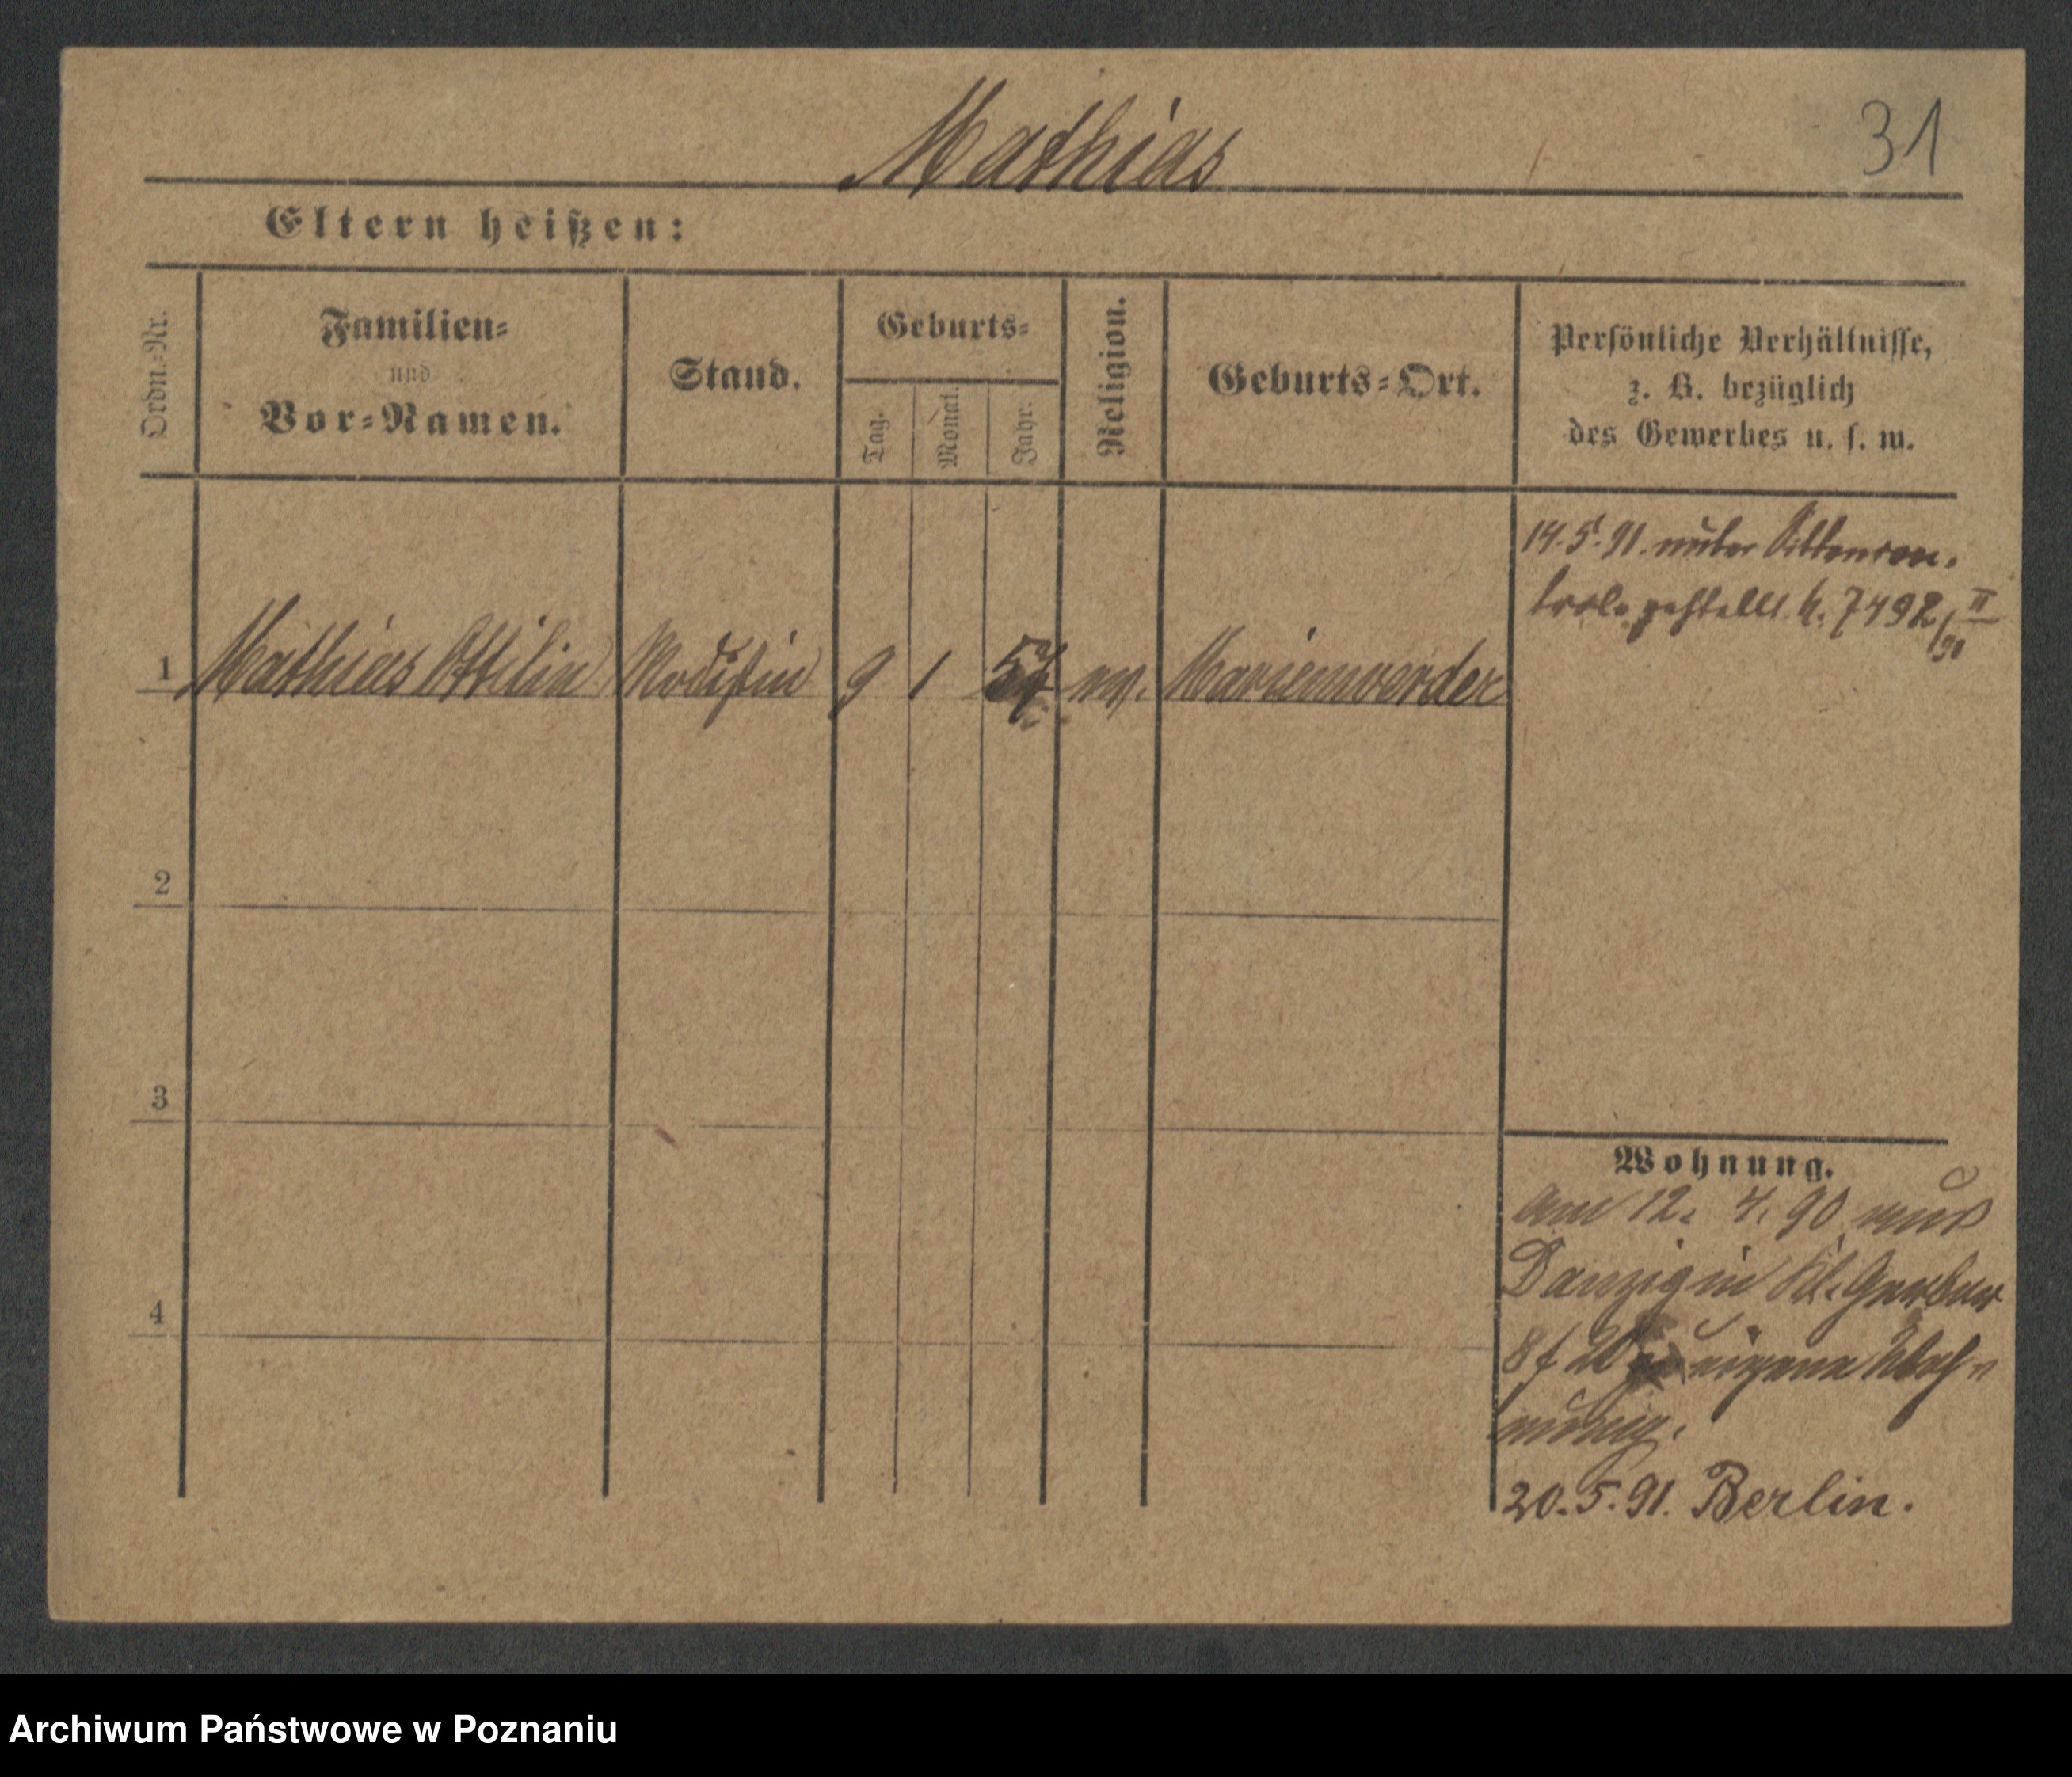 Mathias
31
Eltern heißen:
Ordn.=Nr.
Familien=
und
Vor=Namen.
Stand.
Geburts=
Tag.
Monat.
Jahr.
Religion.
Geburts=Ort.
Persönliche Verhältnisse,
z. B. bezüglich
des Gewerbes u. s. w.
14.5.91. unter Sittencon.
trole gestellt. 7492 II
/91
1 Mathias Ottilie Modistin 9 1 ev. Marienwerder
2
3
4
Wohnung.
am 12. 4. 90 aus
Danzig in Kl. Gerber
8 f eigene Woh=
nung.
20.5.91. Berlin.
Archiwum Państwowe w Poznaniu